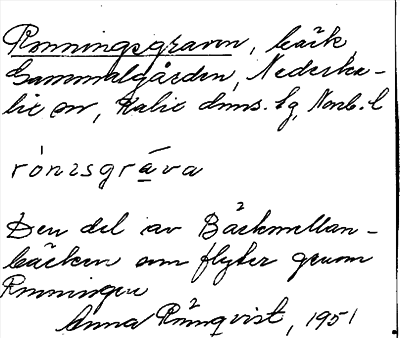 Rönningsgraven, bäck,
Gammalgården, Nederka-
lix sn, Kalix dms. tg, Norb. l
rónɪsgrava
Den del av Bäckmellan-
bäcken som flyter genom
Rönningen
Anna Rönnqvist, 1951